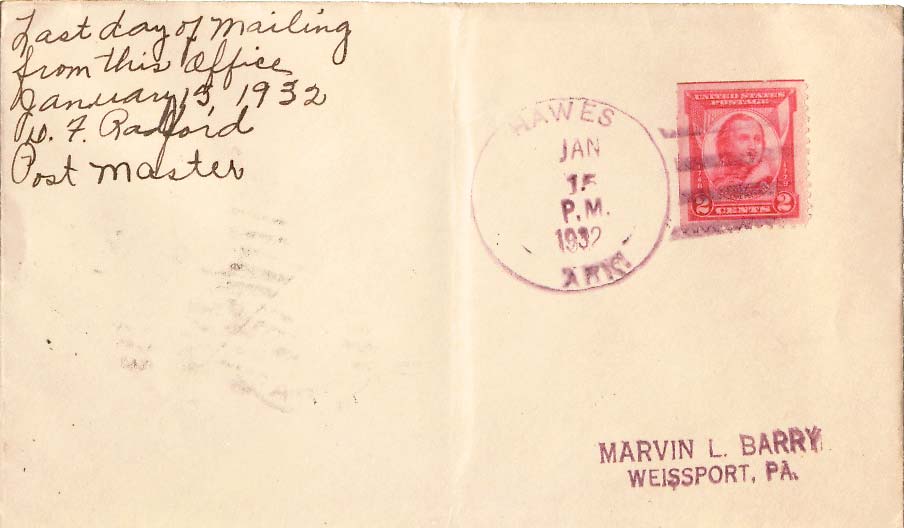 Last day of Mailing
from this Office
January 15, 1932
W. F. Radford
Post Master
HAWES
JAN
15
P.M.
1932
ARK.
UNITED STATES
POSTAGE
2 CENTS 2
MARVIN L. BARRY
WEISSPORT, PA.